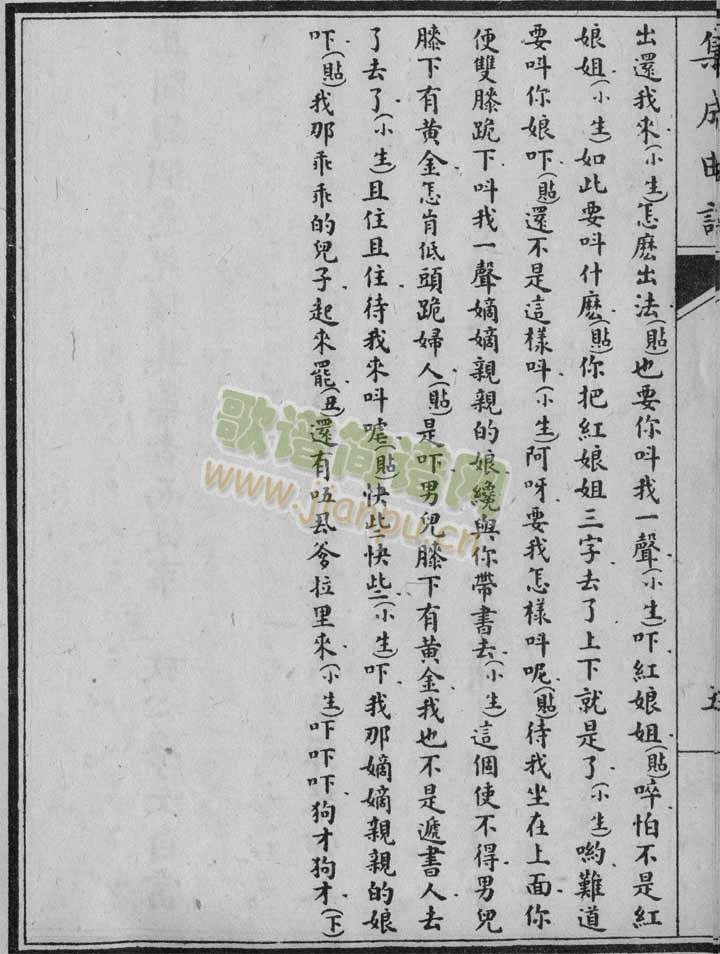 集成曲譜
五
出還我來(小生)怎麽出法(貼)也要你呌我一聲(小生)吓紅娘姐(貼)啐怕不是紅
娘姐(小生)如此要呌什麽(貼)你把紅娘姐三字去了上下就是了(小生)喲難道
要呌你娘吓(貼)還不是這樣呌(小生)阿呀要我怎樣呌呢(貼)待我坐在上面你
便雙膝跪下呌我一聲嫡嫡親親的娘纔與你帶書去(小生)這個使不得男兒
膝下有黃金怎肯低頭跪婦人(貼)是吓男兒膝下有黃金我也不是遞書人去
了去了(小生)且住且住待我來呌嘘(貼)快些快些(小生)吓我那嫡嫡親親的娘
吓(貼)我那乖乖的兒子起來罷(丑)還有吼爹拉里來(小生)吓吓吓狗才狗才(下)
歌谱简谱网
www.jianpu.cn